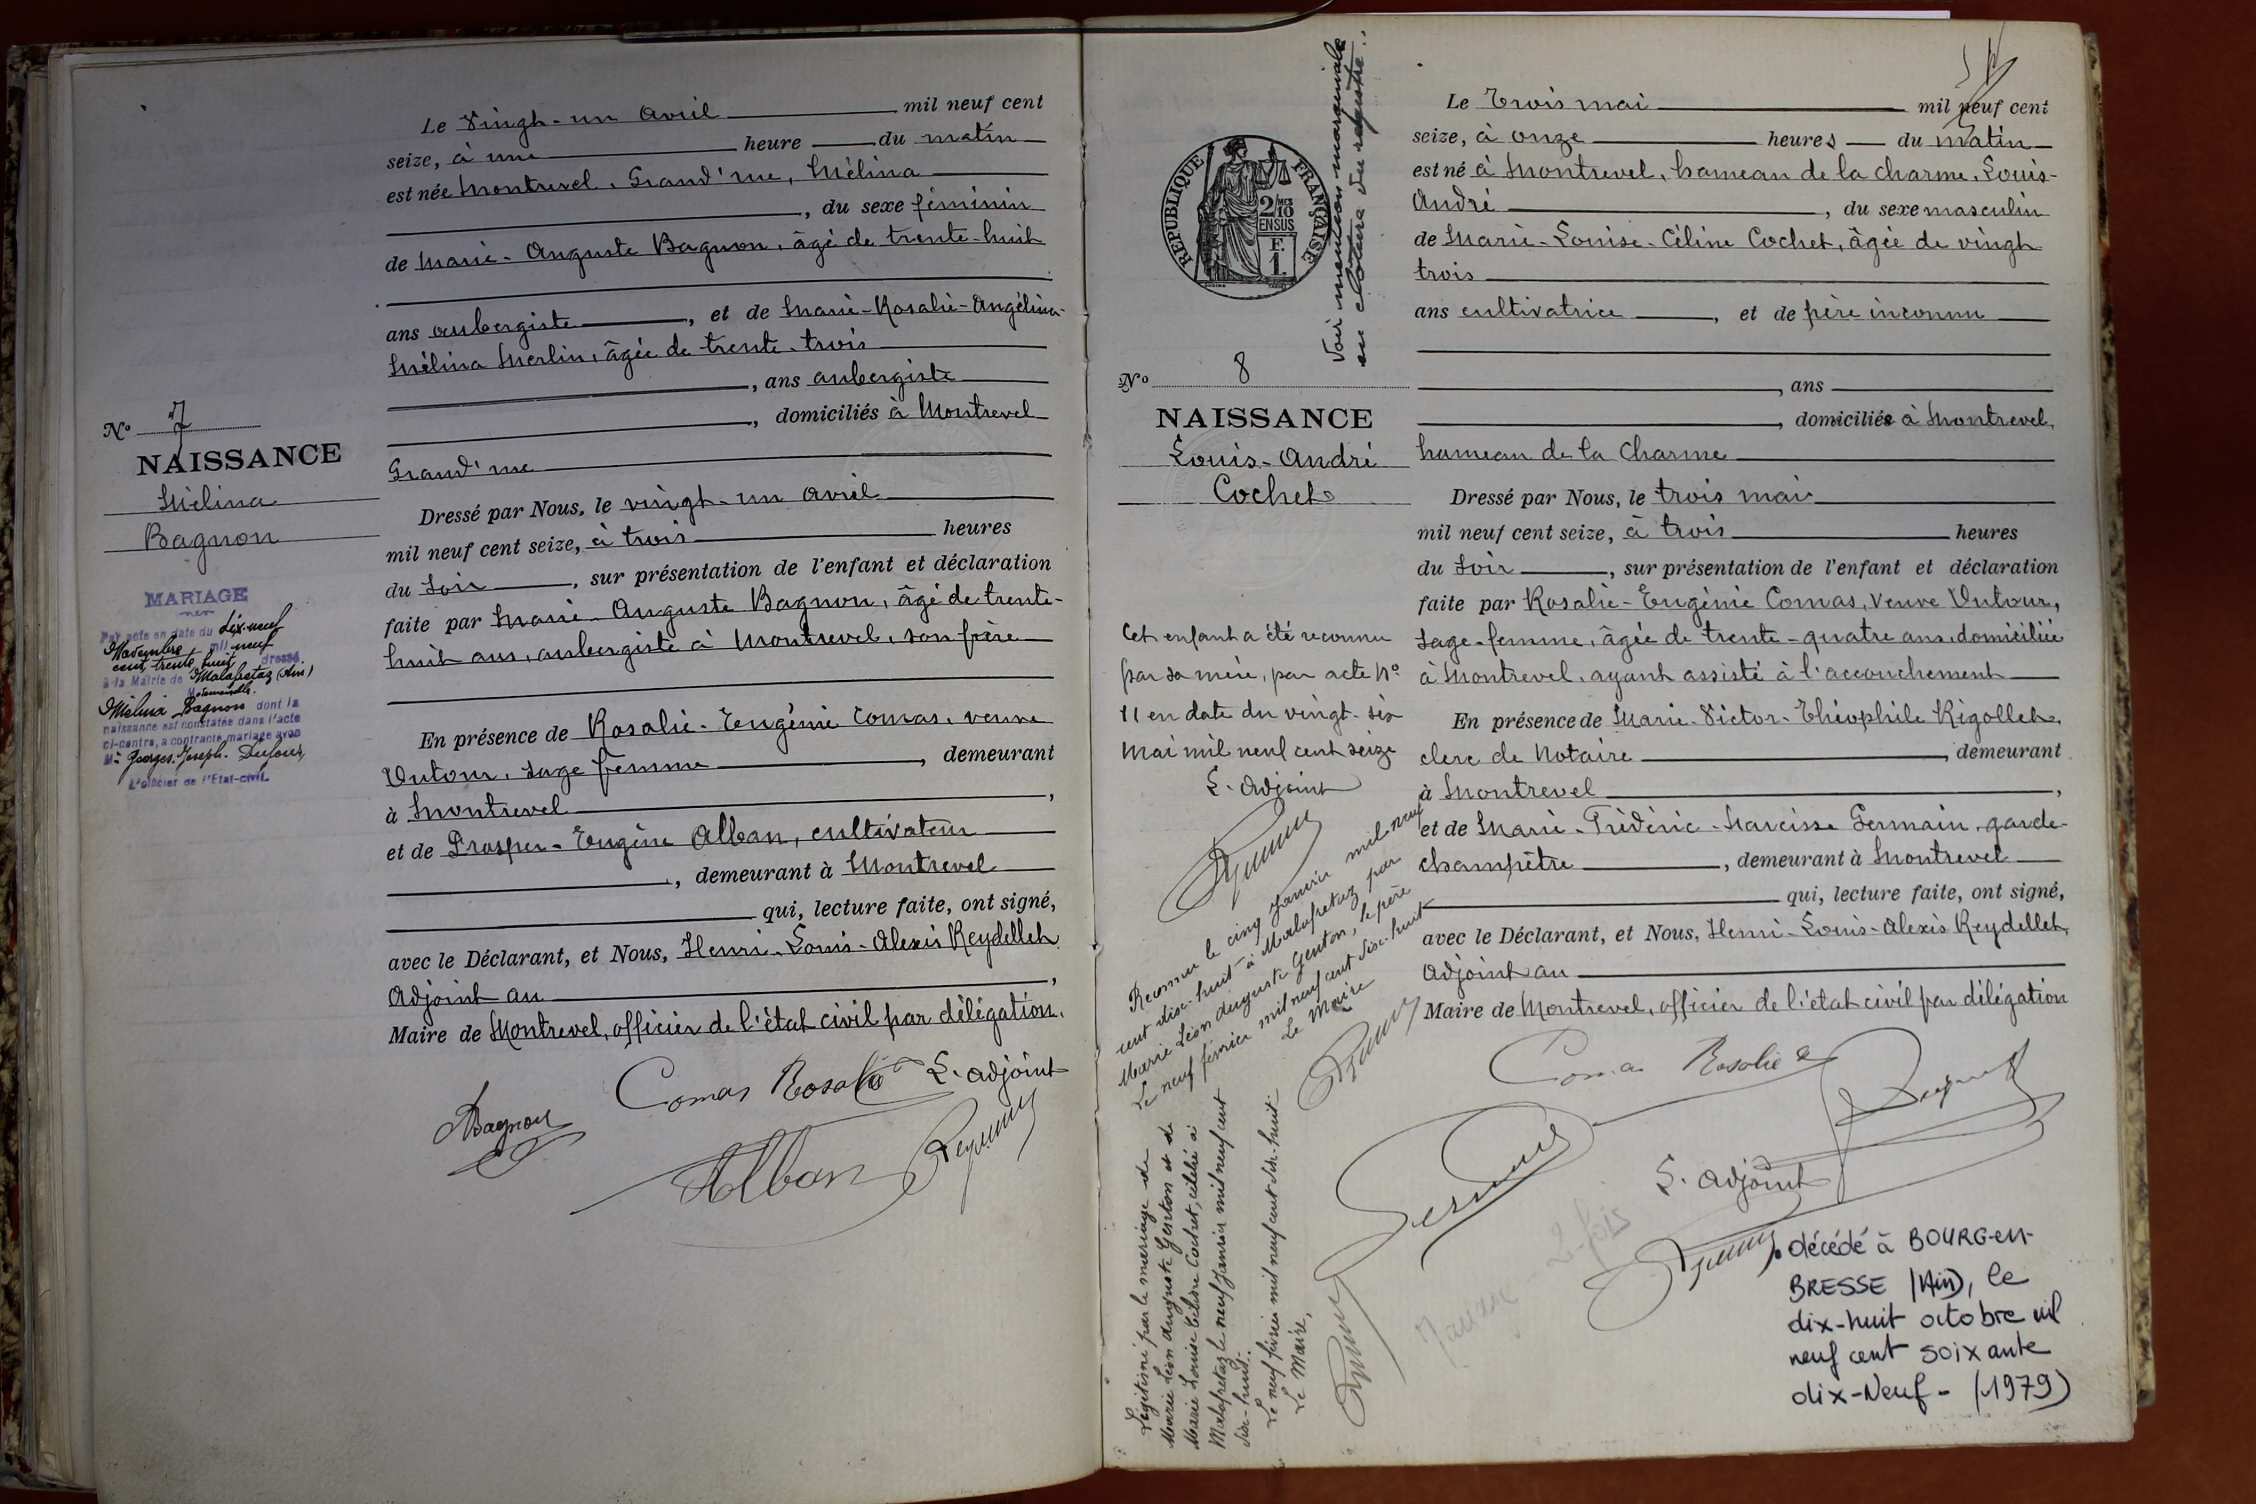 Le Vingt-un Avril mil neuf cent
seize, à une heure du matin
est née Montrevel, Grand'rue, Mélina
, du sexe féminin
de Marie-Auguste Bagnon, âgé de trente-huit
ans aubergiste, et de Marie-Rosalie-Angélina-
Mélina Merlin, âgée de trente-trois
, ans aubergiste
, domiciliés à Montrevel
Grand'rue
Dressé par Nous, le vingt-un avril
mil neuf cent seize, à trois heures
du soir, sur présentation de l'enfant et déclaration
faite par Marie-Auguste Bagnon, âgé de trente-
huit ans, aubergiste à Montrevel, son père
En présence de Rosalie-Eugénie Comas, veuve
Vutour, sage femme, demeurant
à Montrevel,
et de Prosper-Eugène Alban, cultivateur
, demeurant à Montrevel
qui, lecture faite, ont signé,
avec le Déclarant, et Nous, Henri-Louis-Alexis Reydellet
Adjoint au,
Maire de Montrevel, officier de l'état civil par délégation.
L. adjoint
Comas Rosalie
Bagnon
Alban
No 7
NAISSANCE
Mélina
Bagnon
MARIAGE
Par acte en date du dix-neuf
Novembre mil neuf
cent trente huit dressé
à la Mairie de Malafretaz (Ain)
Mademoiselle
Mélina Bagnon dont la
naissance est constatée dans l'acte
ci-contre, a contracté mariage avec
Mr Georges-Joseph Dufour
L'officier de l'Etat-civil.
Voir mention marginale
en clôture du registre.
REPUBLIQUE FRANÇAISE
2/10
EN SUS
F.
1.
No 8
NAISSANCE
Louis-André
Cochet
Le Trois mai mil neuf cent
seize, à onze heures du matin
est né à Montrevel, hameau de la charme, Louis-
André, du sexe masculin
de Marie-Louise-Céline Cochet, âgée de vingt
trois
ans cultivatrice, et de père inconnu
, ans
, domiciliée à Montrevel,
hameau de la Charme
Dressé par Nous, le trois mai
mil neuf cent seize, à trois heures
du soir, sur présentation de l'enfant et déclaration
faite par Rosalie-Eugénie Comas, veuve Vutour,
sage-femme, âgée de trente-quatre ans, domiciliée
à Montrevel, ayant assisté à l'accouchement
En présence de Marie-Victor-Théophile Rigollet,
clerc de Notaire, demeurant
à Montrevel,
et de Marie-Frédéric-Narcisse Germain, garde-
champêtre, demeurant à Montrevel
qui, lecture faite, ont signé,
avec le Déclarant, et Nous, Henri-Louis-Alexis Reydellet,
Adjoint au
Maire de Montrevel, officier de l'état civil par délégation
Comas Rosalie
L. adjoint
Cet enfant a été reconnu
par sa mère, par acte No
11 en date du vingt-six
Mai mil neuf cent seize
L. adjoint
Reconnu le cinq Janvier mil neuf
cent dix-huit à Malafretaz par
Marie Léon Auguste Genton, le père
Le neuf février mil neuf cent dix-huit
Le Maire
Légitimé par le mariage de
Marie Léon Auguste Genton et de
Marie Louise Céline Cochet, célébré à
Malafretaz le neuf Janvier mil neuf cent
dix-huit.
Le neuf février mil neuf cent dix-huit
Le Maire,
décédé à BOURG-en-
BRESSE (Ain), le
dix-huit octobre mil
neuf cent soixante
dix-Neuf - (1979)